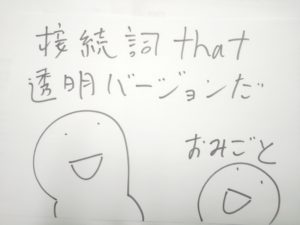 接続詞that
透明バージョンだ
おみごと